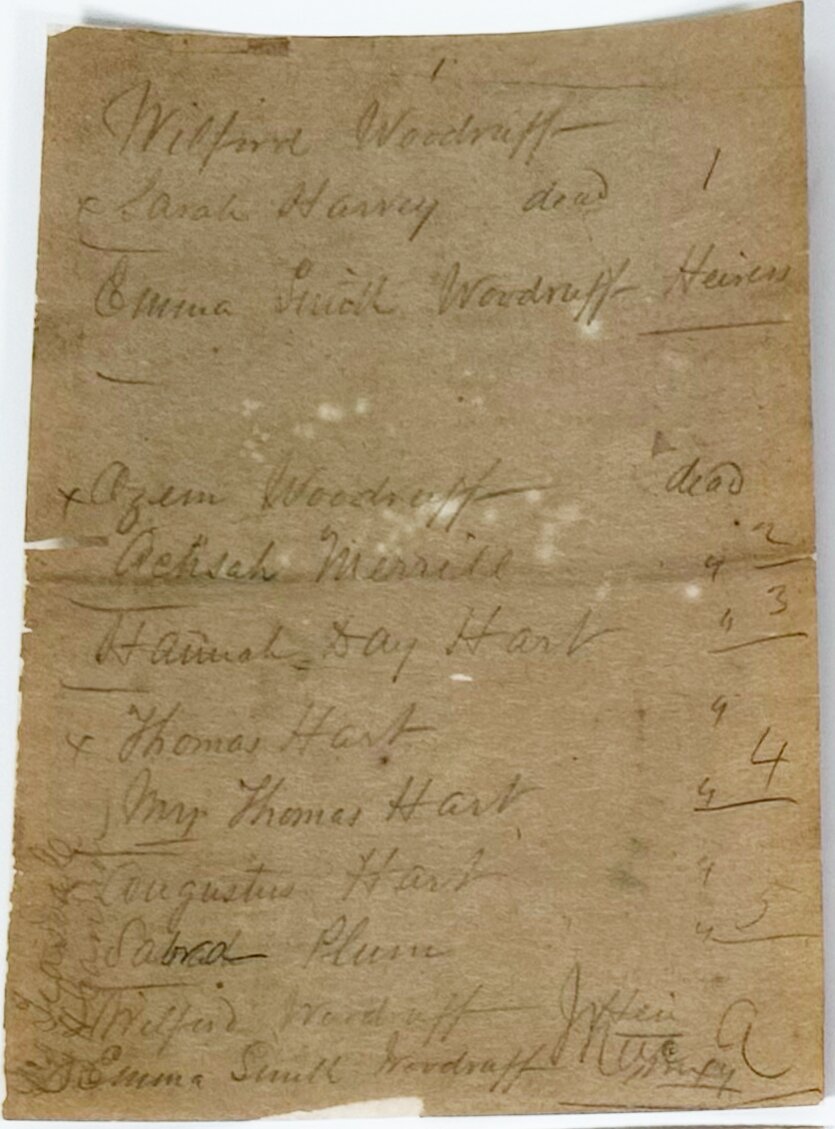 1
Wilford Woodruff
x Sarah Harvey dead 1
Emma Smith Woodruff Heiress
x Ozem Woodruff dead
Achsah Merrill " 2
Hannah Day Hart " 3
x Thomas Hart "
Mrs Thomas Hart " 4
x Augustus Hart "
Sabrad Plum " 5
x Wilford Woodruff Heir
Emma Smith Woodruff